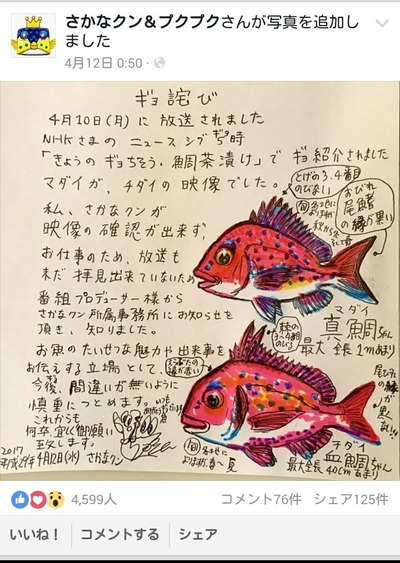 さかなクン&プクプクさんが写真を追加しました
4月12日 0:50
ギョ詫び
4月10日(月)に放送されました
NHKさまのニュースシブ5時
「きょうのギョちそう・鯛茶漬け」で
ギョ紹介されました
マダイが、チダイの映像でした。
私、さかなクンが
映像の確認が出来ず、
お仕事のため、放送も
未だ拝見出来ていないため
番組プロデューサー様から
さかなクン所属事務所にお知らせを
頂き、知りました。
お魚のたいせつな魅力や出来事を
お伝えする立場として
今後、間違いが無いように
慎重につとめます。
これからも
何卒、宜しく御願い
致します。
2017
平成29年4月12日(水) さかなクン
とげの3、4番目
のびない
おびれ
尾鰭
の縁が黒い
マダイ
真鯛ちゃん
最大全長1mあまり
尾びれの
縁が
黒くない!!
チダイ
血鯛ちゃん
最大全長40cmあまり
4,599人
コメント76件 シェア125件
いいね！ コメントする シェア